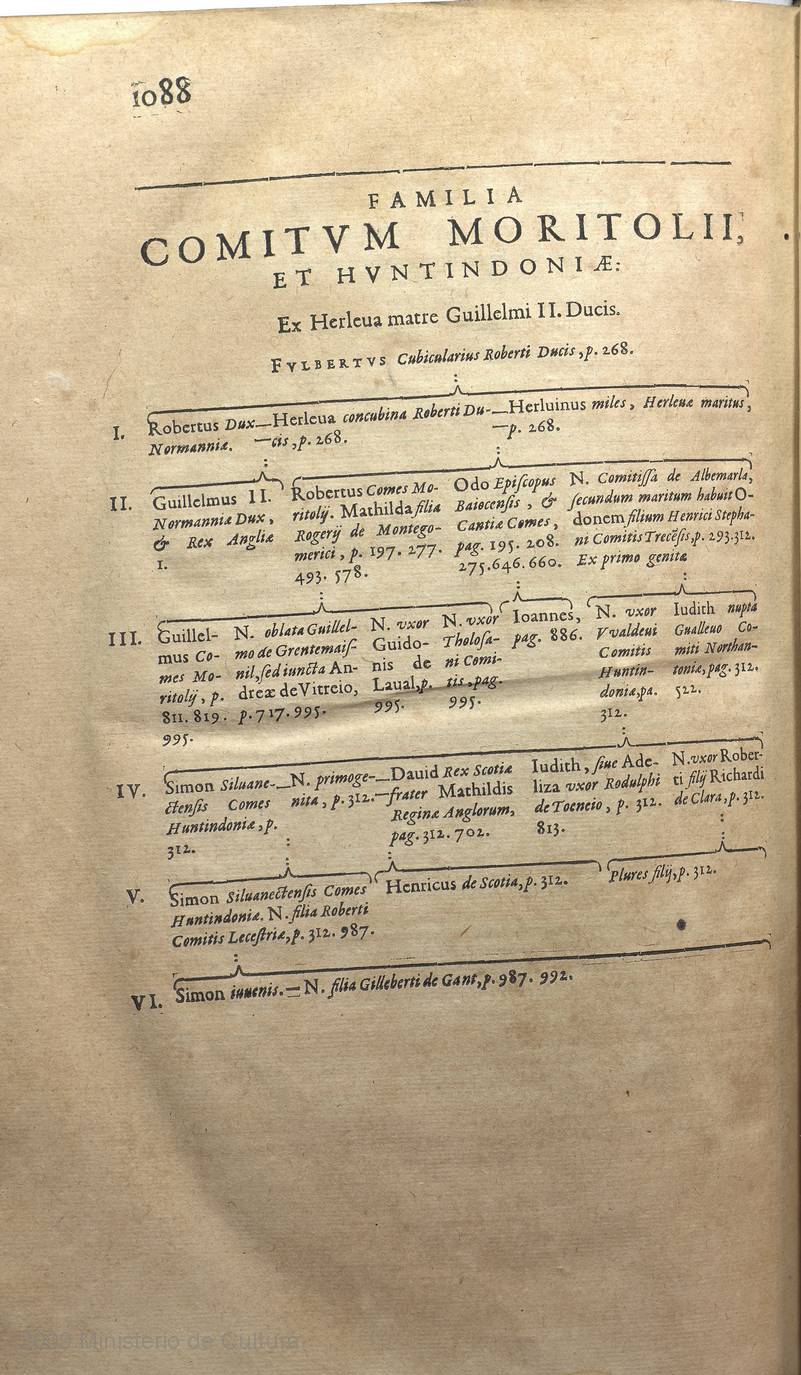 1088
FAMILIA
COMITVM MORITOLII,
ET HVNTINDONIÆ:
Ex Herleua matre Guillelmi II. Ducis.
FVLBERTVS Cubicularius Roberti Ducis, p. 268.
I.
Robertus Dux
Normanniæ.
Herleua concubina Roberti Du-
cis, p. 268.
Herluinus miles, Herleuæ maritus,
p. 268.
II.
Guillelmus II.
Normanniæ Dux,
& Rex Angliæ
I.
Robertus Comes Mo-
ritolij. Mathilda filia
Rogerij de Montego-
merici, p. 197. 277.
493. 578.
Odo Epiſcopus
Baiocenſis, &
Cantiæ Comes,
pag. 195. 208.
275. 646. 660.
N. Comitiſſa de Albemarla,
ſecundum maritum habuit O-
donem filium Henrici Stepha-
ni Comitis Trecẽſis, p. 293. 312.
Ex primo genita
III.
Guillel-
mus Co-
mes Mo-
ritolij, p.
811. 819.
995.
N. oblata Guillel-
mo de Grentemaiſ-
nil, ſed iuncta An-
dreæ de Vitreio,
p. 717. 995.
N. vxor
Guido-
nis de
Laual, p.
995.
N. vxor
Tholoſa-
ni Comi-
tis, pag.
995.
Ioannes,
pag. 886.
N. vxor
Vvaldeui
Comitis
Huntin-
doniæ, pa.
312.
Iudith nupta
Gualleuo Co-
miti Northan-
toniæ, pag. 312.
522.
IV.
Simon Siluane-
ctenſis Comes
Huntindoniæ, p.
312.
N. primoge-
nita, p. 312.
Dauid Rex Scotiæ
frater Mathildis
Reginæ Anglorum,
pag. 312. 702.
Iudith, ſiue Ade-
liza vxor Rodulphi
de Toeneio, p. 312.
813.
N. vxor Rober-
ti filij Richardi
de Clara, p. 312.
V.
Simon Siluanectenſis Comes
Huntindoniæ. N. filia Roberti
Comitis Leceſtriæ, p. 312. 987.
Henricus de Scotia, p. 312.
Plures filij, p. 312.
VI.
Simon iuuenis. — N. filia Gilleberti de Gant, p. 987. 992.
Ministerio de Cultura